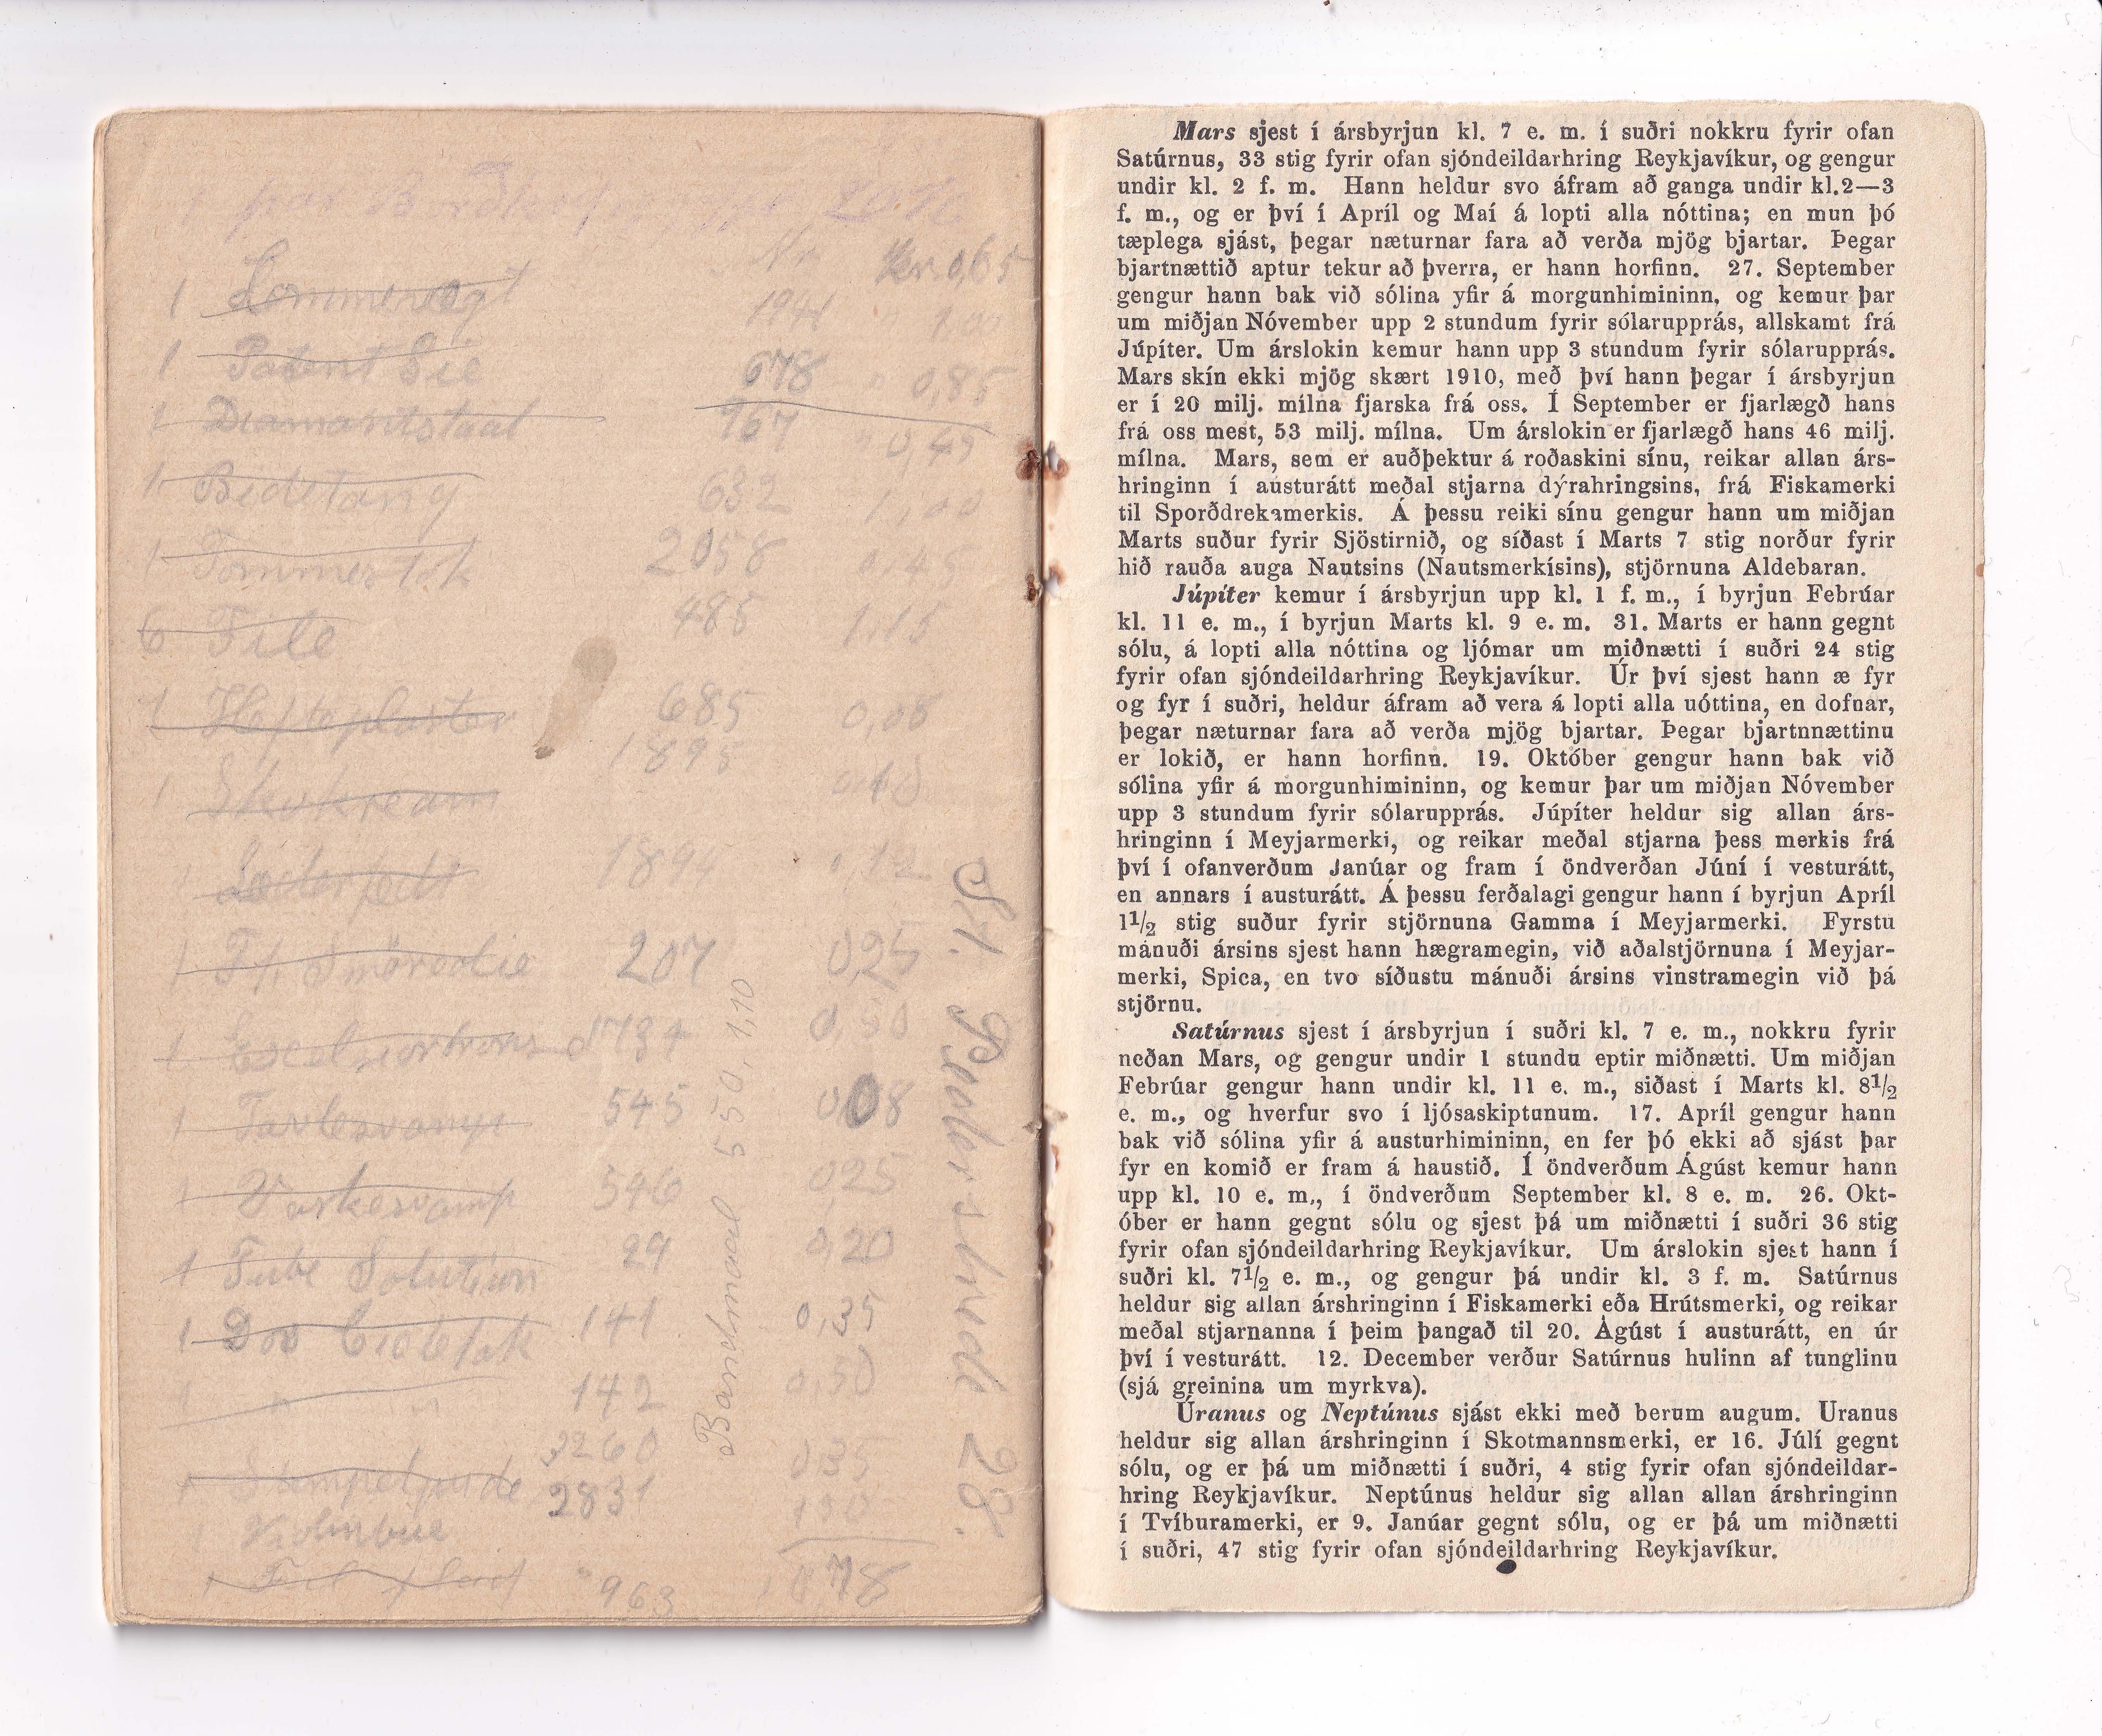 20
Nr. Kr. 0,65
1 Lommevægt 1941 1.00
1 Patent Sie 678 0,85
1 Diamantstaal 967 0,45
1 Bidetang 632 1,00
1 2058 0,45
6 File 485 1,15
1 Hefteplaster 685 0,08
1895
1 Skokream
Læderfedt 189 0,12
1 Fl. 207 0,25
1 1734 0,50
1 Tavlesvamp 545 0,08
1 Vaskesvamp 546 0,25
1 Tube Solution 29 0,20
1 141 0,35
1 " " 142 0,50
3260 0,35
1 Stempelpude 2831 150
1 Violinbue
1 963 78
Bandmaal 550, 1,10
St. 28.
Mars sjest í ársbyrjun kl. 7 e. m. í suðri nokkru fyrir ofan
Satúrnus, 33 stig fyrir ofan sjóndeildarhring Reykjavíkur, og gengur
undir kl. 2 f. m. Hann heldur svo áfram að ganga undir kl. 2—3
f. m., og er því í Apríl og Maí á lopti alla nóttina; en mun þó
tæplega sjást, þegar næturnar fara að verða mjög bjartar. Þegar
bjartnættið aptur tekur að þverra, er hann horfinn. 27. September
gengur hann bak við sólina yfir á morgunhimininn, og kemur þar
um miðjan Nóvember upp 2 stundum fyrir sólarupprás, allskamt frá
Júpíter. Um árslokin kemur hann upp 3 stundum fyrir sólarupprás.
Mars skín ekki mjög skært 1910, með því hann þegar í ársbyrjun
er í 20 milj. mílna fjarska frá oss. Í September er fjarlægð hans
frá oss mest, 53 milj. mílna. Um árslokin er fjarlægð hans 46 milj.
mílna. Mars, sem er auðþektur á roðaskini sínu, reikar allan árs-
hringinn í austurátt meðal stjarna dýrahringsins, frá Fiskamerki
til Sporðdrekamerkis. Á þessu reiki sínu gengur hann um miðjan
Marts suður fyrir Sjöstirnið, og síðast í Marts 7 stig norður fyrir
hið rauða auga Nautsins (Nautsmerkísins), stjörnuna Aldebaran.
Júpíter kemur í ársbyrjun upp kl. 1 f. m., í byrjun Febrúar
kl. 11 e. m., í byrjun Marts kl. 9 e. m. 31. Marts er hann gegnt
sólu, á lopti alla nóttina og ljómar um miðnætti í suðri 24 stig
fyrir ofan sjóndeildarhring Reykjavíkur. Úr því sjest hann æ fyr
og fyr í suðri, heldur áfram að vera á lopti alla uóttina, en dofnar,
þegar næturnar fara að verða mjög bjartar. Þegar bjartnnættinu
er lokið, er hann horfinn. 19. Október gengur hann bak við
sólina yfir á morgunhimininn, og kemur þar um miðjan Nóvember
upp 3 stundum fyrir sólarupprás. Júpíter heldur sig allan árs-
hringinn í Meyjarmerki, og reikar meðal stjarna þess merkis frá
því í ofanverðum Janúar og fram í öndverðan Júní í vesturátt,
en annars í austurátt. Á þessu ferðalagi gengur hann í byrjun Apríl
1½ stig suður fyrir stjörnuna Gamma í Meyjarmerki. Fyrstu
mánuði ársins sjest hann hægramegin, við aðalstjörnuna í Meyjar-
merki, Spica, en tvo síðustu mánuði ársins vinstramegin við þá
stjörnu.
Satúrnus sjest í ársbyrjun í suðri kl. 7 e. m., nokkru fyrir
neðan Mars, og gengur undir 1 stundu eptir miðnætti. Um miðjan
Febrúar gengur hann undir kl. 11 e. m., siðast í Marts kl. 8½
e. m., og hverfur svo í ljósaskiptunum. 17. Apríl gengur hann
bak við sólina yfir á austurhimininn, en fer þó ekki að sjást þar
fyr en komið er fram á haustið. Í öndverðum Ágúst kemur hann
upp kl. 10 e. m., í öndverðum September kl. 8 e. m. 26. Okt-
óber er hann gegnt sólu og sjest þá um miðnætti í suðri 36 stig
fyrir ofan sjóndeildarhring Reykjavíkur. Um árslokin sjest hann í
suðri kl. 7½ e. m., og gengur þá undir kl. 3 f. m. Satúrnus
heldur sig allan árshringinn í Fiskamerki eða Hrútsmerki, og reikar
meðal stjarnanna í þeim þangað til 20. Ágúst í austurátt, en úr
því í vesturátt. 12. December verður Satúrnus hulinn af tunglinu
(sjá greinina um myrkva).
Úranus og Neptúnus sjást ekki með berum augum. Uranus
heldur sig allan árshringinn í Skotmannsmerki, er 16. Júlí gegnt
sólu, og er þá um miðnætti í suðri, 4 stig fyrir ofan sjóndeildar-
hring Reykjavíkur. Neptúnus heldur sig allan allan árshringinn
í Tvíburamerki, er 9. Janúar gegnt sólu, og er þá um miðnætti
í suðri, 47 stig fyrir ofan sjóndeildarhring Reykjavíkur.